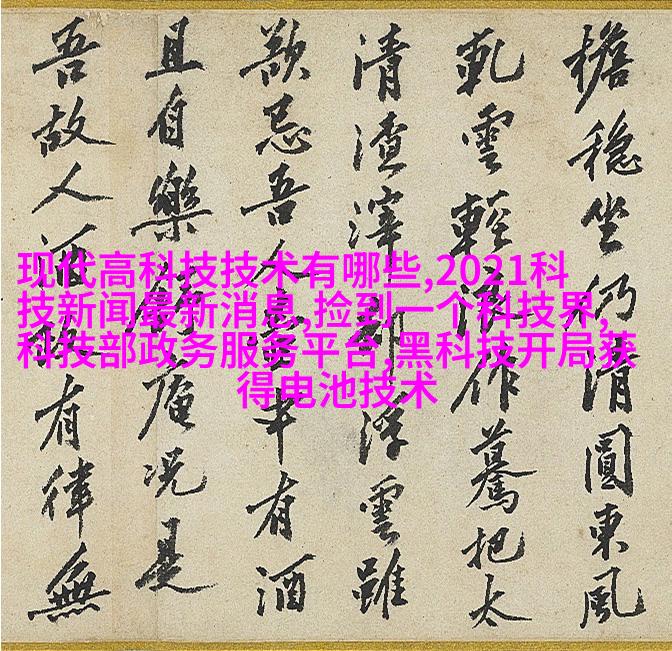 现代高科技技术有哪些,2021科
技新闻最新消息,捡到一个科技界,
科技部政务服务平台,黑科技开局获
得电池技术
檐穩坐仍清圓東風
軋雲輕浪作驀把太
清渣滓卻浮雲雖
忌吾人有酒
且自樂庵況是
吾故人酒有律無